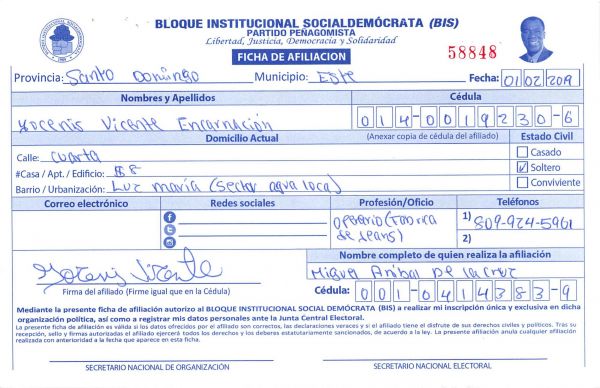 BLOQUE INSTITUCIONAL SOCIALDEMÓCRATA (BIS)
PARTIDO PEÑAGOMISTA
Libertad, Justicia, Democracia y Solidaridad
FICHA DE AFILIACION
58848
Provincia: Santo Domingo Municipio: Este Fecha: 01 02 2019
Nombres y Apellidos Cédula
Yocenis Vicente Encarnación 014-0019230-6
Domicilio Actual (Anexar copia de cédula del afiliado) Estado Civil
Calle: cuarta
Casado
#Casa / Apt. / Edificio: 8
Soltero
Barrio / Urbanización: Luz maría (Sector agua loca)
Conviviente
Correo electrónico Redes sociales Profesión/Oficio Teléfonos
operario (Fabrica de Jeans)
1) 809-924-5961
2)
Yocenis Vicente
Nombre completo de quien realiza la afiliación
Miguel Anibal De la cruz
Firma del afiliado (Firme igual que en la Cédula)
Cédula: 001-0414383-9
Mediante la presente ficha de afiliación autorizo al BLOQUE INSTITUCIONAL SOCIAL DEMÓCRATA (BIS) a realizar mi inscripción única y exclusiva en dicha
organización política, así como a registrar mis datos personales ante la Junta Central Electoral.
La presente ficha de afiliación es válida si los datos ofrecidos por el afiliado son correctos, las declaraciones veraces y si el afiliado tiene el disfrute de sus derechos civiles y políticos. Tras su
recepción, sello y firmas autorizadas el afiliado ejercerá todos los derechos y los deberes estatutariamente sancionados, de acuerdo a la ley. La presente afiliación anula cualquier afiliación
realizada con anterioridad a la fecha que aparece en esta ficha.
SECRETARIO NACIONAL DE ORGANIZACIÓN SECRETARIO NACIONAL ELECTORAL